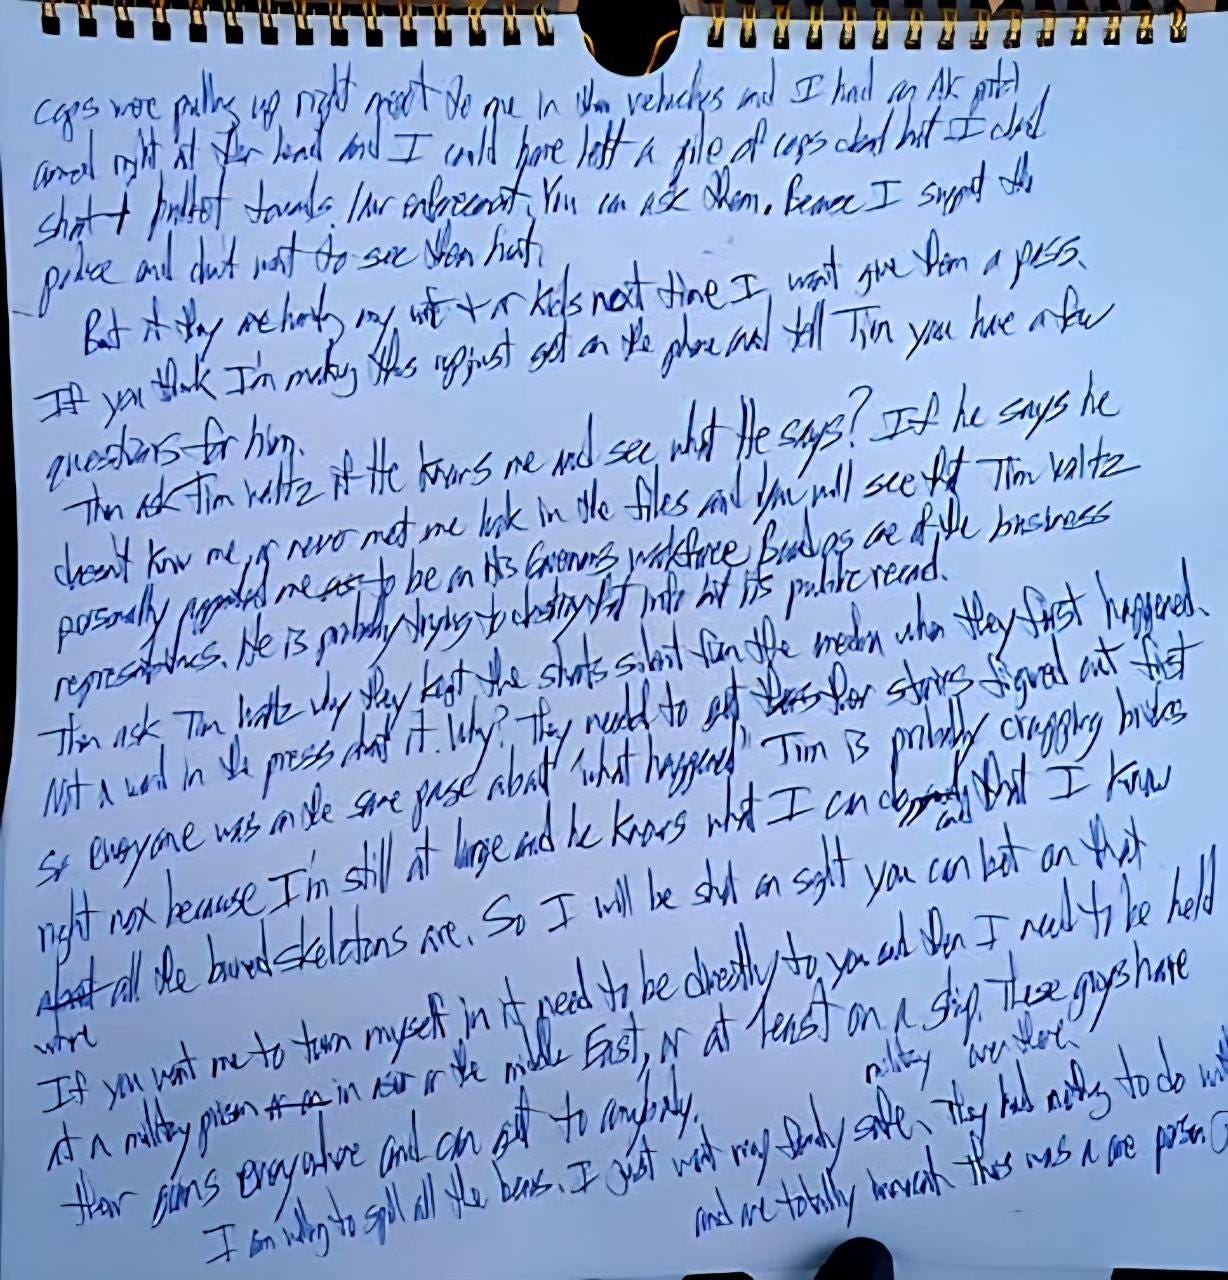 cops were pulling up right next to me in their vehicles and I had an AK pistol
aimed right at their head and I could have left a pile of cops dead but I didnt
shot 1 bullet towards law enforcement. You can ask them. Because I support the
police and dont want to see them hurt.
But if they are hurting my wife + or kids next time I wont give them a pass.
If you think I'm making this up just get on the phone and tell Tim you have a few
questions for him.
Then ask Tim Waltz if He knows me and see what He says? If he says he
doesn't know me, or never met me look in the files and you will see that Tim Waltz
personally appointed me as to be on His Governors workforce Board as one of the business
representatives. He is probably trying to destroy that info but its public record.
Then ask Tim Waltz why they kept the shots silent from the media when they first happened.
Not a word in the press about it. Why? They needed to get their stories figured out first
so everyone was on the same page about "what happened" Tim is probably crapping bricks
right now because I'm still at large and he knows what I can do and that I know
where all the buried skeletons are. So I will be shot on sight you can bet on that
If you want me to turn myself in it need to be directly to you and then I need to be held
at a military prison in or the middle East, or at least on a ship. These guys have
their guns everywhere and can get to anybody.
military over there.
I am willing to spill all the beans. I just want my family safe. They had nothing to do with
and are totally innocent. this was a one person